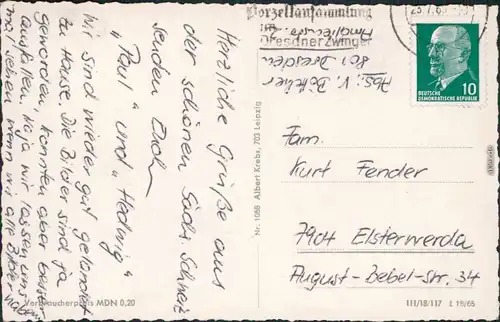 Herzliche Grüße aus
der schönen Sächs. Schweiz
senden Euch
"Paul" und "Hedwig"
Wir sind wieder gut gelandet
zu Hause. Die Bilder sind ja
geworden, konnten aber besser
ausfallen. Na ja wir lassen uns
mal sehen wenn wir alle Bilder haben
Verbraucherpreis MDN 0,20
Nr. 1055 Albert Krebs, 703 Leipzig
Porzellansammlung
im
Dresdner Zwinger
Abs. V. Böttcher
801 Dresden
DEUTSCHE
DEMOKRATISCHE REPUBLIK
10
Fam.
Kurt Fender
7904 Elsterwerda
August-Bebel-Str. 34
III/18/117 L 18/65